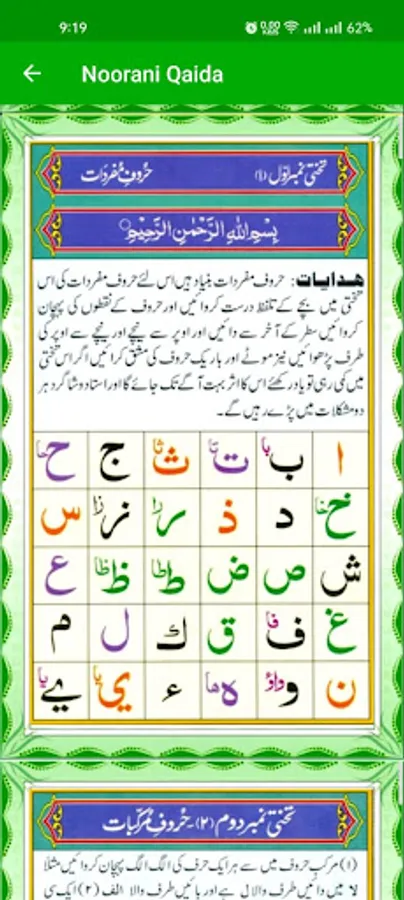 9:19 0.00 KB/S 62%
Noorani Qaida
تختی نمبر اوّل (۱) حُروفِ مُفرَدَات
بِسْمِ اللهِ الرَّحْمٰنِ الرَّحِيْمِ
ھدایات: حروف مفردات بنیاد ہیں اس لئے حروف مفردات کی اس
تختی میں بچے کے تلفظ درست کروائیں اور حروف کے نقطوں کی پہچان
کروائیں سطر کے آخر سے دائیں اور اوپر سے نیچے اور نیچے سے اوپر کی
طرف پڑھوائیں نیز موٹے اور باریک حروف کی مشق کرائیں اگر اس تختی
میں کمی رہی تو یاد رکھئے اس کا اثر بہت آگے تک جائے گا اور استاد و شاگرد ہر
دو مشکلات میں پڑے رہیں گے۔
ا ب با ت تا ث ثا ج ح حا
خ خا د ذ ر را ز زا س
ش ص ض ط طا ظ ظا ع
غ ف فا ق ك ل م
ن و واؤ ه ھا ء ي یا ے یا
تختی نمبر دوم (۲) - حُروفِ مُرکّبات
(۱) مرکب حروف میں سے ہر ایک حرف کی الگ الگ پہچان کروائیں مثلاً
لا میں دائیں طرف والا ل ہے اور بائیں طرف والا الف (۲) ایک سی